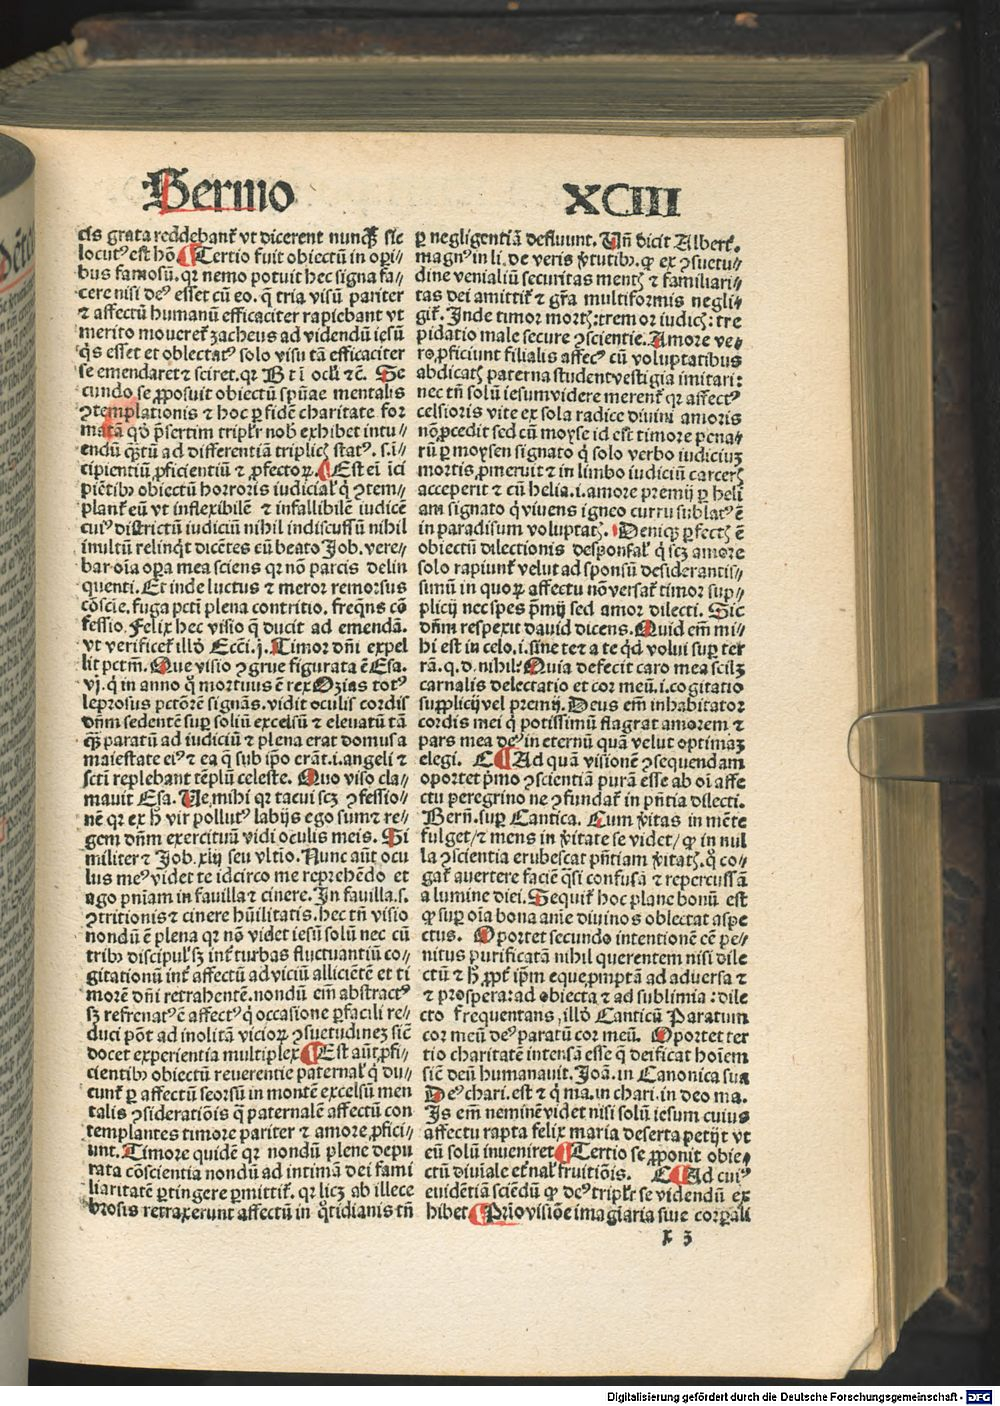 Sermo XCIII
cis grata reddebant̃ vt dicerent nunq̃ꝫ sic
locutꝰ est hõ ¶ Tertio fuit obiectũ in oꝑi⸗
bus famosũ. qꝛ nemo potuit hec signa fa⸗
cere nisi deꝰ esset cũ eo. q̃ tria visũ pariter
⁊ affectũ humanũ efficaciter rapiebant vt
merito moueret̃ zacheus ad videndũ iesũ
q̇s esset et oblectatꝰ solo visu tã efficaciter
se emendaret ⁊ sciret. qꝛ Bt̃i oculi ⁊c̃. Se
cundo se ꝓposuit obiectũ spũae mentalis
ꝯtemplationis ⁊ hoc ꝑ fidẽ charitate for
matã qð p̃sertim tripl̃r nob̃ exhibet intu⸗
endũ q̃ꝫtũ ad differentiã triplicꝭ statꝰ. s. i⸗
cipientiũ ꝓficientiũ ⁊ ꝓfectoꝝ. ¶ Est ei ĩci
piẽtibꝰ obiectũ horroris iudicial̃ q̇ ꝯtem⸗
plant̃ eũ vt inflexibilẽ ⁊ infallibilẽ iudicẽ
cuiꝰ districtũ iudiciũ nihil indiscussũ nihil
inultũ relinq̇t dicẽtes cũ beato Job. vere⸗
bar oĩa oꝑa mea sciens qꝛ nõ parcis delin
quenti. Et inde luctus ⁊ meror remorsus
cõsciẽ. fuga pctĩ plena contritio. freqñs cõ
fessio. Felix hec visio q̃ ducit ad emendã.
vt verificet̃ illð Ecc̃i. j. Timor dñi expel
lit pctm̃. Que visio ꝯgrue figurata ẽ Esa.
vj. q̇ in anno q̊ mortuus ẽ rex Ozias totꝰ
leprosus pctõrẽ signãs. vidit oculis cordis
dñm sedentẽ suꝑ soliũ excelsũ ⁊ eleuatũ tã
q̃ꝫ paratũ ad iudiciũ ⁊ plena erat domus a
maiestate eiꝰ ⁊ ea q̃ sub ip̃o erãt. i. angeli ⁊
sctĩ replebant tẽplũ celeste. Quo viso cla⸗
mauit Esa. Ve mihi qꝛ tacui scꝫ ꝯfessio⸗
nẽ qꝛ ex h̊ vir pollutꝰ labijs ego sum ⁊ re⸗
gem dñm exercituũ vidi oculis meis. Si
militer ⁊ Job. xlij seu vltio. Nunc aũt ocu
lus meꝰ videt te idcirco me reprehẽdo et
ago pñiam in fauilla ⁊ cinere. In fauilla. s.
ꝯtritionis ⁊ cinere hũilitatis. hec tñ visio
nondũ ẽ plena qꝛ nõ videt iesũ solũ nec cũ
tribꝰ discipulꝭ sꝫ int̃ turbas fluctuantiũ co⸗
gitationũ int̃ affectũ ad viciũ alliciẽtẽ et ti
morẽ dñi retrahentẽ. nondũ em̃ abstractꝰ
sꝫ refrenatꝰ ẽ affectꝰ q̇ occasione ꝑ facili re⸗
duci põt ad inolitã vicioꝝ ꝯsuetudinez sicẽ
docet experientia multiplex ¶ Est aũt ꝓfi⸗
cientibꝰ obiectũ reuerentie paternal̃ q̇ du⸗
cunt̃ ꝑ affectũ seorsũ in montẽ excelsũ men
talis ꝯsideratiõis q̇ paternalẽ affectũ con
templantes timore pariter ⁊ amore ꝓfici⸗
unt. Timore quidẽ qꝛ nondũ plene depu
rata cõscientia nondũ ad intimã dei fami
liaritatẽ ꝑtingere ꝑmittit̃. qꝛ licꝫ ab illece
brosis retraxerunt affectũ in q̊tidianis tñ
ꝑ negligentiã defluunt. Uñ dicit Albert̃.
magnꝰ in li. de veris ṽtutibꝰ. ꝙ ex ꝯsuetu⸗
dine venialiũ securitas mentꝭ ⁊ familiari⸗
tas dei amittit̃ ⁊ gr̃a multiformis negli⸗
git̃. Inde timor mortꝭ: tremor iudicꝭ: tre
pidatio male secure ꝯscientie. Amore ve⸗
ro ꝓficiunt filialis affecꝰ cũ voluptatibus
abdicatꝭ paterna student vestigia imitari:
nec tñ solũ iesum videre merent̃ qꝛ affectꝰ
celsioris vite ex sola radice diuini amoris
nõ ꝓcedit sed cũ moyse id est timore pena⸗
rũ ꝑ moysen signato q̇ solo verbo iudiciuꝫ
mortis ꝓmeruit ⁊ in limbo iudiciũ carcerꝭ
acceperit ⁊ cũ helia. i. amore premij ꝑ heli
am signato q̇ viuens igneo curru sublatꝰ ẽ
in paradisum voluptatꝭ. Deniqꝫ ꝑfectꝭ ẽ
obiectũ dilectionis desponsal̃ q̇ scꝫ amore
solo rapiunt̃ velut ad sponsũ desiderantis⸗
simũ in quoꝝ affectu nõ versat̃ timor sup⸗
plicij nec spes p̃mij sed amor dilecti. Sic
dñm respexit dauid dicens. Quid em̃ mi⸗
hi est in celo. i. sine te ⁊ a te q̇d volui suꝑ ter
rã. q. d. nihil: Quia defecit caro mea scilꝫ
carnalis delectatio et cor meũ. i. cogitatio
supplicij vel premij. Deus em̃ inhabitator
cordis mei q̇ potissimũ flagrat amorem ⁊
pars mea deꝰ in eternũ quã velut optimaꝫ
elegi. C ¶ Ad quã visionẽ ꝯsequendam
oportet p̃mo ꝯscientiã purã esse ab oĩ affe
ctu peregrino ne ꝯfundat̃ in pñtia dilecti.
Berñ. suꝑ Cantica. Cum ṽitas in mẽte
fulget/ ⁊ mens in ṽitate se videt/ ꝙ in nul
la ꝯscientia erubescat pñtiam ṽitatꝭ. q̊ co⸗
gat̃ auertere faciẽ q̃si confusã ⁊ repercussã
a lumine diei. Sequit̃ hoc plane bonũ est
ꝙ suꝑ oĩa bona anie diuinos oblectat aspe
ctus. Oportet secundo intentionẽ eẽ pe⸗
nitus purificatã nihil querentem nisi dile
ctũ ⁊ h̊ ꝓpt̃ ip̃m eque ꝓmptã ad aduersa ⁊
⁊ prospera: ad obiecta ⁊ ad sublimia: dile
cto frequentans, illð Canticũ Paratum
cor meũ deꝰ paratũ cor meũ. Oportet ter
tio charitatẽ intensã esse q̃ deificat hoĩem
sicẽ deũ humanauit. Joã. in Canonica sua
Deꝰ chari. est ⁊ q̇ ma. in chari. in deo ma.
Is em̃ neminẽ videt nisi solũ iesum cuius
affectu rapta felix maria deserta petijt vt
eũ solũ inueniret ¶ Tertio se ꝓponit obie⸗
ctũ diuiale et̃nal̃ fruitiõis. C ¶ Ad cuiꝰ
euidẽtiã sciẽdũ ꝙ deꝰ tripl̃r se videndũ ex
hibet ¶ Prĩo visiõe imagĩaria siue corꝑali
x 3
Digitalisierung gefördert durch die Deutsche Forschungsgemeinschaft - DFG